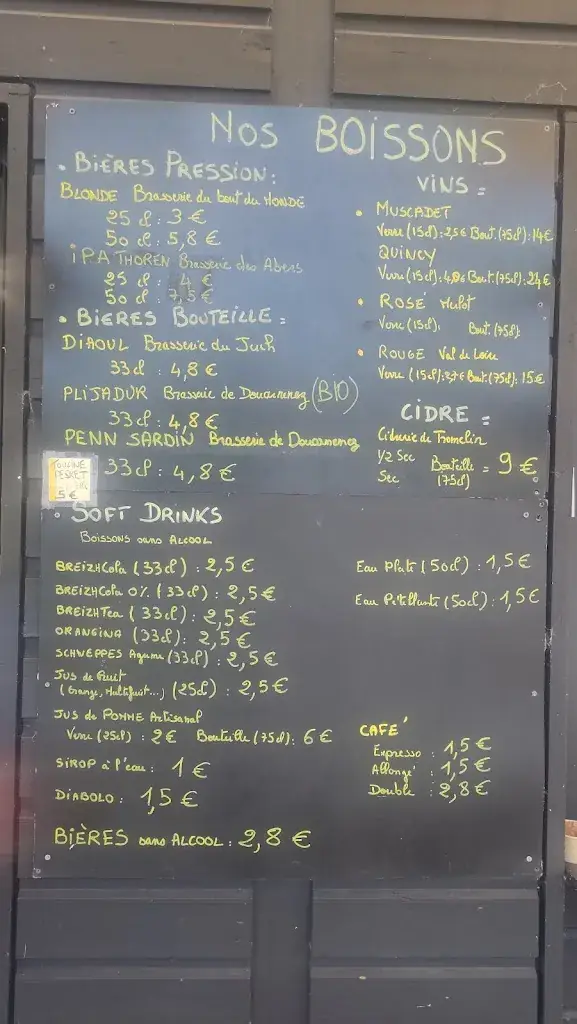 NOS BOISSONS
• BIÈRES PRESSION :
BLONDE Brasserie du bout du MONDE
25 cl : 3 €
50 cl : 5,8 €
IPA THOREN Brasserie des Abers
25 cl : 4 €
50 cl : 7,5 €
• BIERES BOUTEILLE :
DIAOUL Brasserie du Juch
33cl : 4,8 €
PLIJADUR Brasserie de Douarnenez (BIO)
33cl : 4,8 €
PENN SARDIN Brasserie de Douarnenez
33cl : 4,8 €
5 €
VINS :
• MUSCADET
Verre (15cl): 2,5€ Bout. (75cl): 14€
QUINCY
Verre (15cl): Bout. (75cl): 24€
• ROSÉ
Verre (15cl): Bout. (75cl):
• ROUGE Val de Loire
Verre (15cl): Bout. (75cl): 15€
CIDRE :
Cidrerie de Tromelin
1/2 Sec
Sec
Bouteille (75cl) = 9 €
- SOFT DRINKS
Boissons sans ALCOOL
BREIZHCola (33cl) : 2,5 €
BREIZHCola 0% (33cl) : 2,5€
BREIZHTea (33cl) : 2,5€
ORANGINA (33cl) : 2,5€
SCHWEPPES Agrume (33cl) : 2,5€
Jus de Fruit
(Orange, Multifruit...) (25cl) : 2,5€
JUS de POMME Artisanal
Verre (25cl) : 2€ Bouteille (75cl): 6 €
SIROP à l'eau : 1 €
DIABOLO : 1,5 €
BIÈRES sans ALCOOL : 2,8 €
Eau Plate (50cl) : 1,5€
Eau Pétillante (50cl) : 1,5€
CAFÉ
Expresso : 1,5 €
Allongé : 1,5 €
Double : 2,8 €